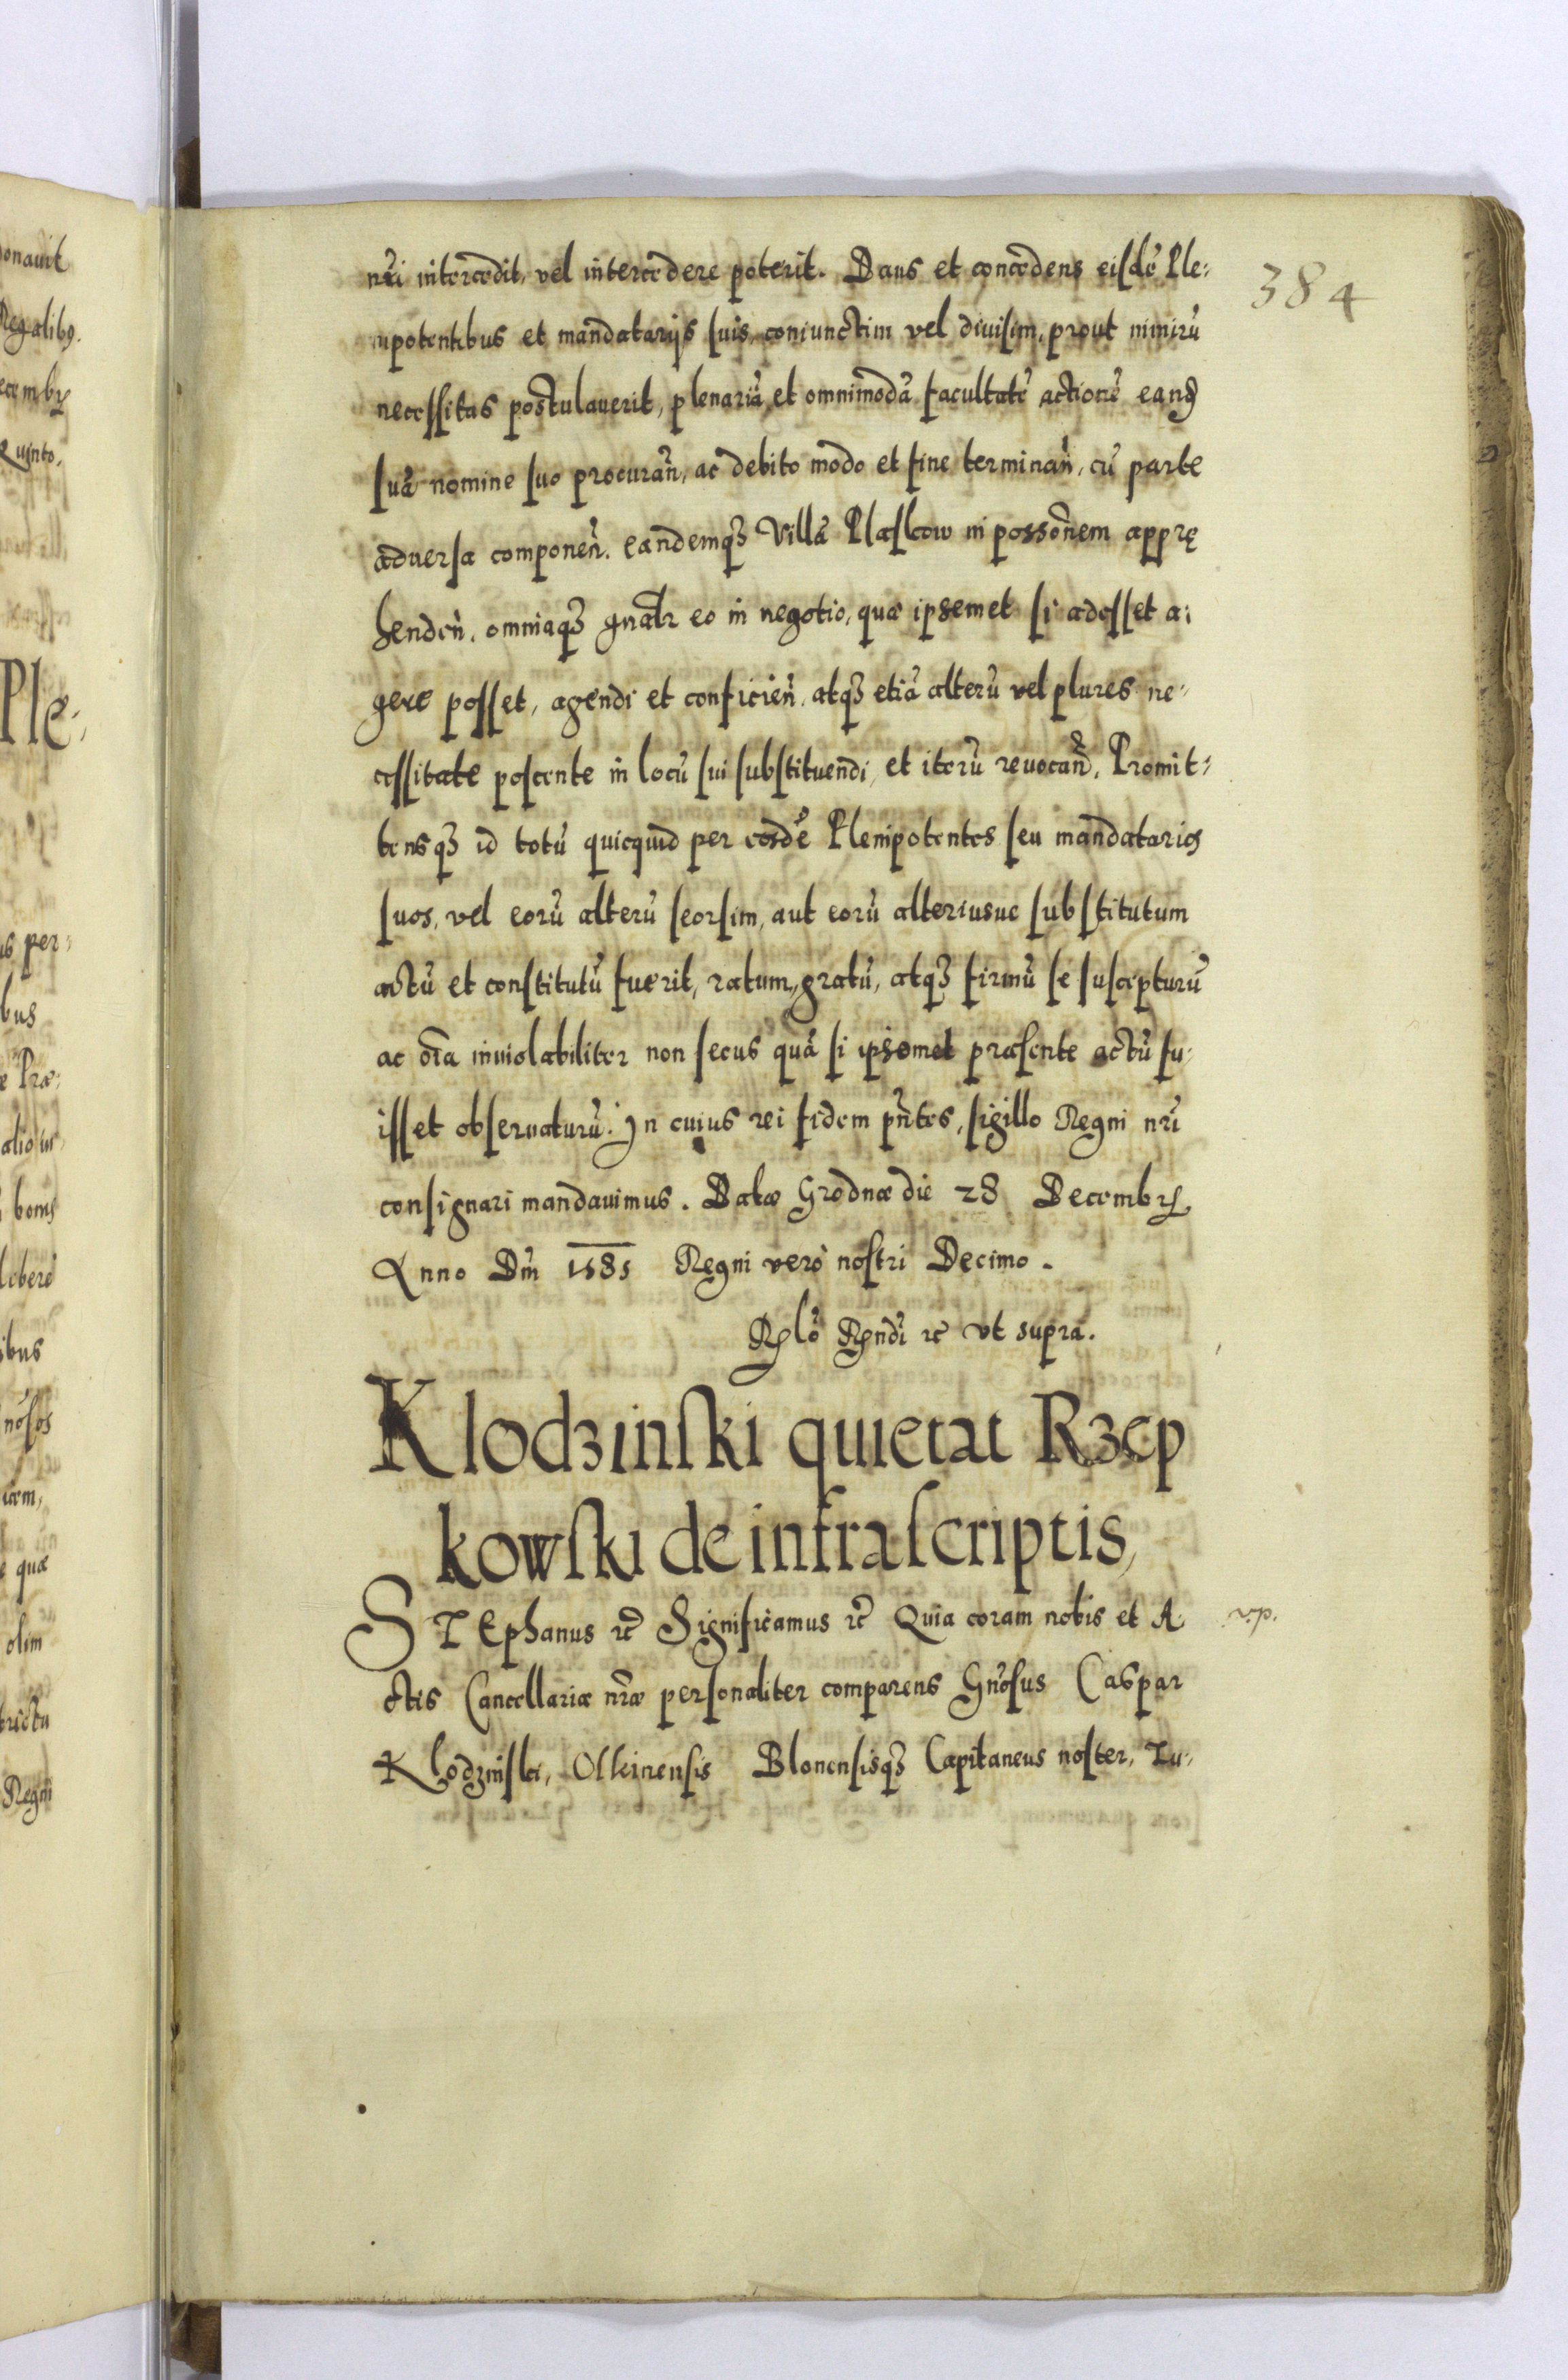 384
nr̃i intercedit, vel intercedere poterit. Dans et concedens eisdē Ple:
nipotentibus et mandatarijs suis, coniunctim vel divisim, prout nimirū
necessitas postulaverit, plenariā et omnimodā facultatē actionē eand
suā nomine suo procurañ, ac debito modo et fine terminañ, cū parte
adversa componeñ. eandemqꝫ Villā Plaskow in possoñem apprę
hendeñ, omniaqꝫ gñalr eo in negotio, quæ ipsemet si adesset a:
gere posset, agendi et conficieñ, atqꝫ etiā alterū vel plures ne:
cessitate poscente in locū sui substituendi, et iterū revocand̃, Promit:
tensqꝫ id totū quicquid per eosdē Plenipotentes seu mandatarios
suos, vel eorū alterū seorsim, aut eorū alteriusue substitutum
actū et constitutū fuerit, ratum, gratū, atqꝫ firmū se suscepturū
ac oīa inviolabiliter non secus quā si ipsemet præsente actū fu:
isset observaturū. In cuius rei fidem pñtes, sigillo Regni nr̃i
consignari mandavimus. Datæ Grodnæ die 28 Decembrꝭ
Anno Dm̃ 1585 Regni verò nostri Decimo.
Relõ Rẽndi ꝛc̃ ut supra.
Klodzinski quietat Rzep
kowski de infrascriptis,
STEphanus ꝛc̃ Significamus ꝛc̃ Quia coram nobis et A
ctis Cancellariæ nr̃æ personaliter comparens Gñosus Caspar
Klodzinski, Olkinensis Blonensisqꝫ Capitaneus noster, Tu:
onavit
Regalibꝰ.
ecembrꝭ
Quinto,
Ple:
us per:
bus
e Præ:
atio in
bonis
ibus
e quæ
olim
Regni